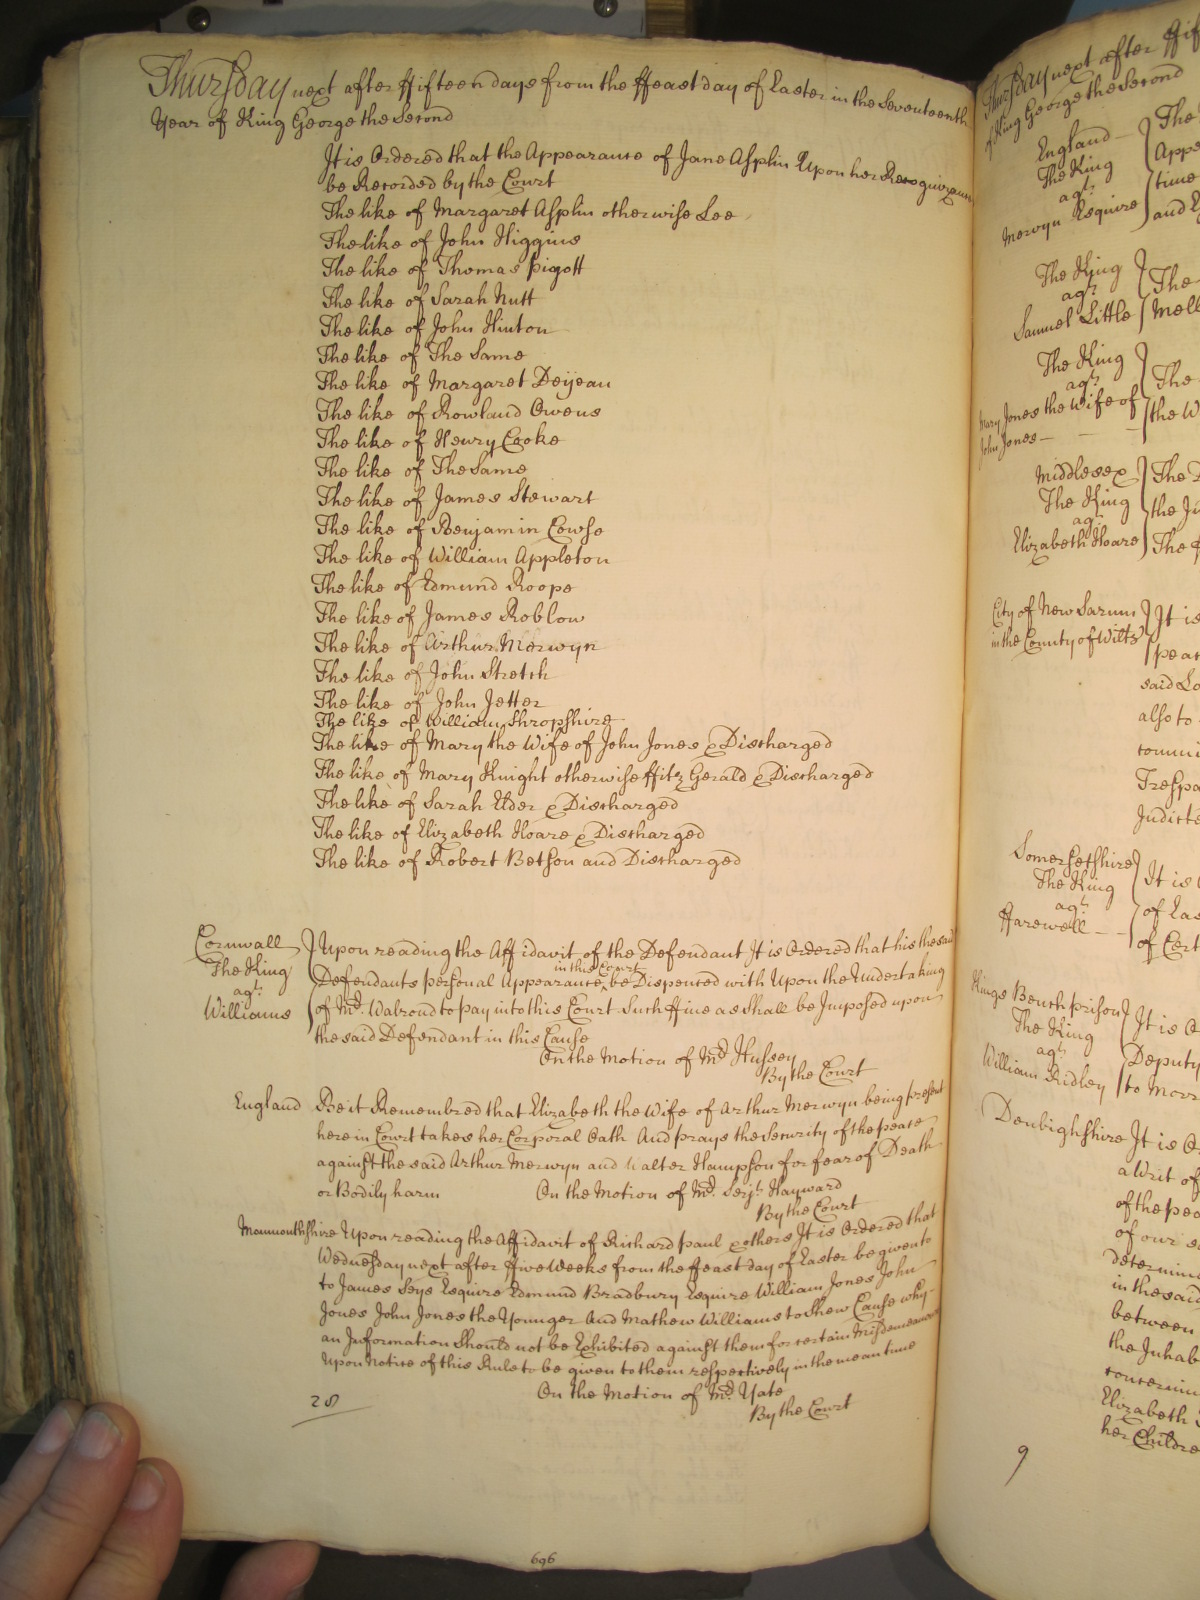 Thursday next after ffifteen days from the ffeast day of Easter in the Seventeenth
Year of King George the Second
It is Ordered that the Appearance of Jane Asplin Upon her Recognizance
be Recorded by the Court
The like of Margaret Asplin otherwise Lee
The like of John Higgins
The like of Thomas Pigott
The like of Sarah Nutt
The like of John Hinton
The like of The Same
The like of Margaret Deijean
The like of Rowland Owens
The like of Henry Cooke
The like of The Same
The like of James Stewart
The like of Benjamin Cowse
The like of William Appleton
The like of Edmund Roope
The like of James Roblow
The like of Arthur Merwyn
The like of John Stretch
The like of John Jetter
The like of William Shropshire
The like of Mary the Wife of John Jones & Discharged
The like of Mary Knight otherwise ffitz Gerald & Discharged
The like of Sarah Elder & Discharged
The like of Elizabeth Hoare & Discharged
The like of Robert Betson and Discharged
Cornwall
The King
agt.
Williams
Upon reading the Affidavit of the Defendant It is Ordered that his the said
in this Court
Defendants personal Appearance be Dispenced with Upon the Undertaking
of Mr. Walrond to pay into this Court Such ffine as Shall be Imposed upon
the said Defendant in this Cause
On the Motion of Mr. Hussey
By the Court
England Be it Remembred that Elizabeth the Wife of Arthur Merwyn being present
here in Court takes her Corporal Oath And prays the Security of the peace
against the said Arthur Merwyn and Walter Hampson for fear of Death
or Bodily harm On the Motion of Mr. Serjt. Hayward
By the Court
Monmouthshire Upon reading the Affidavit of Richard Paul & others It is Ordered that
Wednesday next after ffive Weeks from the ffeast day of Easter be given to
to James Seys Esquire Edmund Bradbury Esquire William Jones John
Jones John Jones the Younger And Mathew Williams to Shew Cause why
an Information Should not be Exhibited against them for certain Misdemeanors
Upon Notice of this Rule to be given to them respectively in the mean time
On the Motion of Mr. Yate
By the Court
28
696
Thursday next after
of King George the Second
England
The King
agt.
Merwyn Esquire
The
Appe
time
and
The King
agt.
Samuel Little
The
Mell
The King
agt.
Mary Jones the Wife of
John Jones
The
the W
Middlesex
The King
agt.
Elizabeth Hoare
The
the Ju
The
City of New Sarum
in the County of Wilts
It is
pear
said Lo
also to
commi
Trespa
Indicte
Somersetshire
The King
agt.
ffarewell
It is
of Eas
of Cert
Kings Bench prison
The King
agt.
William Ridley
It is O
Deputy
to Morr
Denbighshire It is O
a Writ of
of the pea
of our s
determin
in the said
between
the Inhab
concernin
Elizabeth
her Childre
9